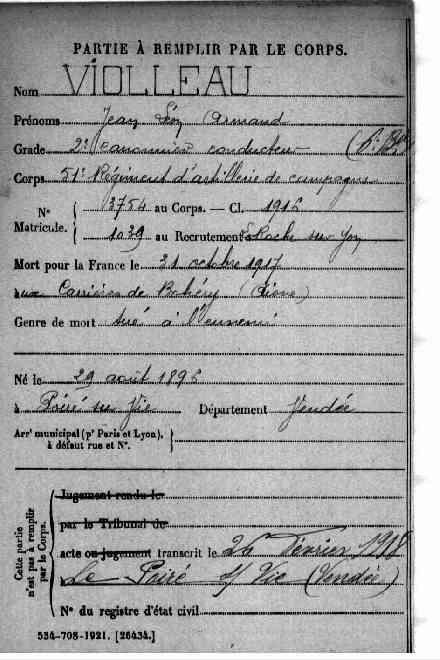 PARTIE À REMPLIR PAR LE CORPS.
Nom VIOLLEAU
Prénoms Jean Léon Armand
Grade 2e Canonnier conducteur (6e Bie)
Corps 51e Régiment d'artillerie de campagne
N° Matricule.
3754 au Corps. — Cl. 1915
1039 au Recrutement La Roche sur Yon
Mort pour la France le 31 octobre 1917
aux Carrières de (Aisne)
Genre de mort tué à l'ennemi
Né le 29 août 1895
à Poiré sur Vie Département Vendée
Arrt municipal (pr Paris et Lyon),
à défaut rue et N°.
Cette partie
n'est pas à remplir
par le Corps.
Jugement rendu le
par le Tribunal de
acte ou jugement transcrit le 26 Février 1918
Le Poiré s/ Vie (Vendée)
N° du registre d'état civil
534-708-1921. [26434.]